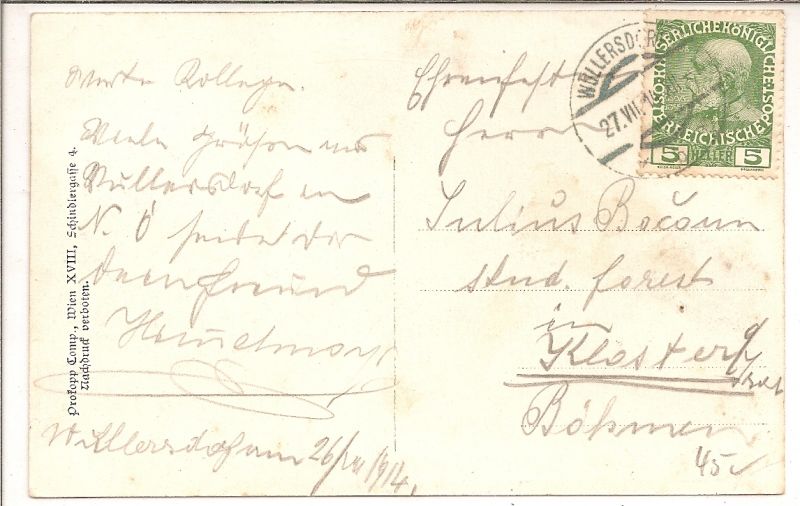 Werte Kollege.
Viele Grüßen aus
Wullersdorf in
N. Ö sendet dir
dein Freund
Wullersdorf am 26/VII 1914.
Prokopp Comp., Wien XVIII, Schindlergasse 4.
Nachdruck verboten.
WÖLLERSDOR
27.VII.14
KAISERLICHE KÖNIGLICHE ÖSTERREICHISCHE POST
5 HELLER 5
Herrn
Julius Bočann
stud. forest
in
Kloster
Böhmen
45